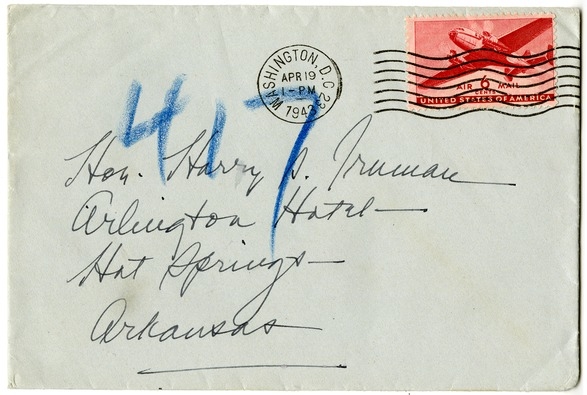 WASHINGTON, D.C. 22
APR 19
1-PM
1943
AIR 6 MAIL
CENTS
UNITED STATES OF AMERICA
417
Hon. Harry S. Truman
Arlington Hotel
Hot Springs
Arkansas